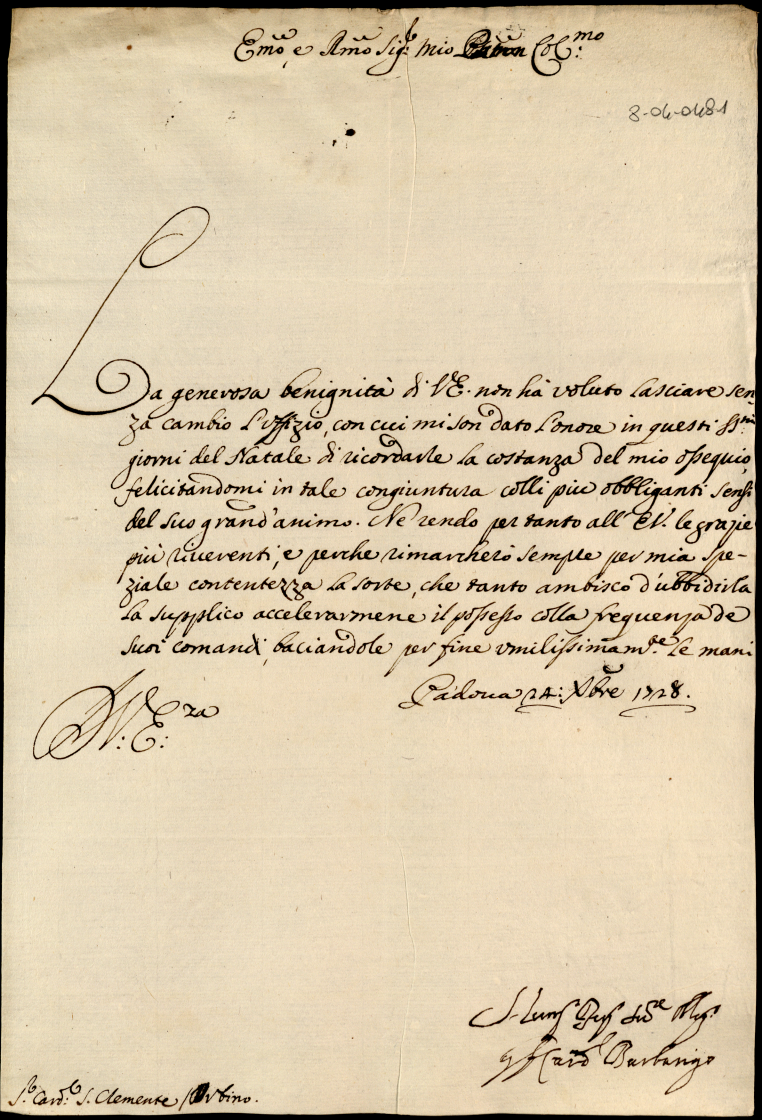 Emo, e Rmo Sig.r mio Padron Col:mo
8-04-0481
La generosa benignità di V.E. non hà voluto lasciare sen-
za cambio l'uffizio, con cui mi son dato l'onore in questi SSmi
giorni del Natale di ricordarle la costanza del mio ossequio,
felicitandomi in tale congiuntura colli più obbliganti sensi
del suo grand'animo. Ne rendo per tanto all' E.V. le grazie
più riverenti, e perche rimarcherò sempre per mia spe-
ziale contentezza la sorte, che tanto ambisco d'ubbidirla
la supplico accelerarmene il possesso colla frequenza de
suoi comandi, baciandole per fine umilissimam.te le mani
Padova 24: Xbre 1728.
D V: E:za
Card Barbarigo
S.r Card.le S. Clemente / Urbino.